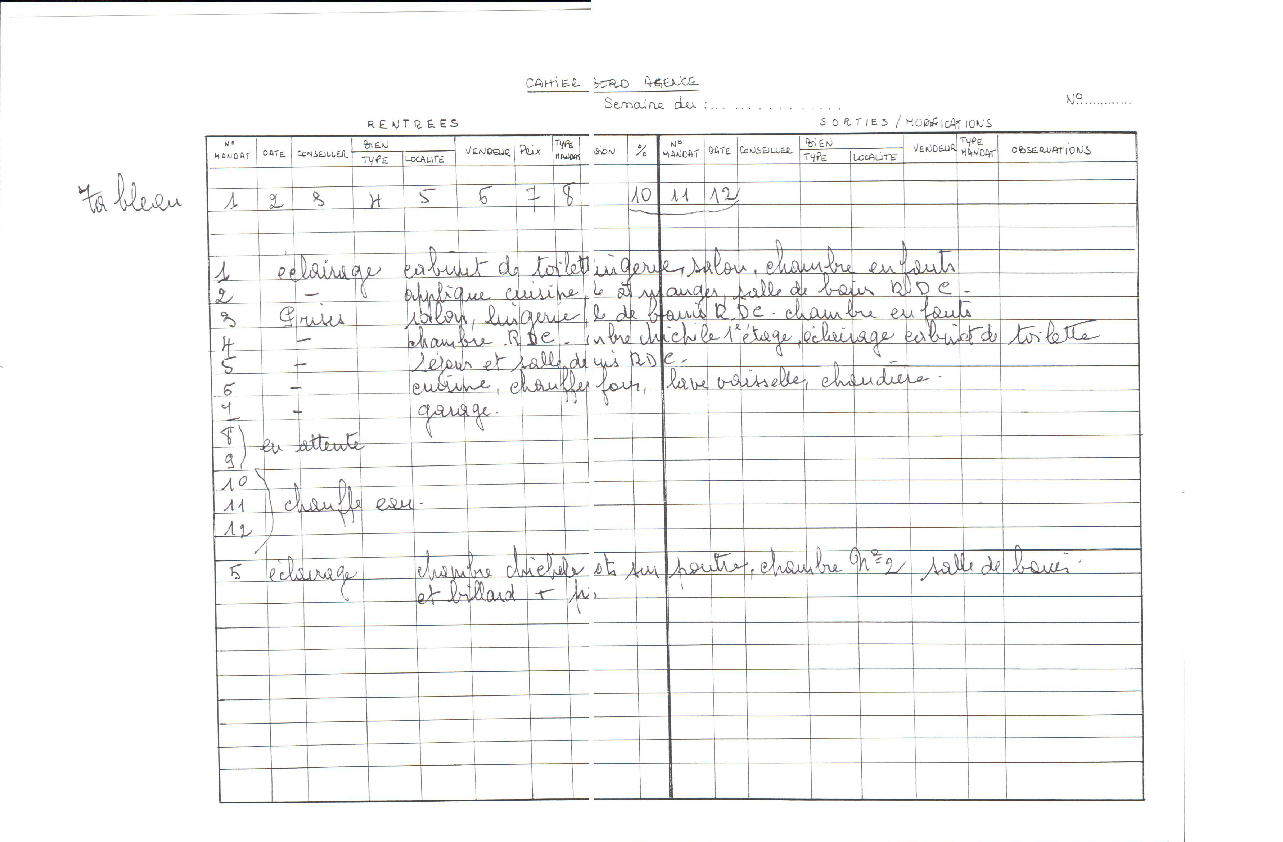 CAHIER BORD AGENCE
Semaine du : ..............
N° ............
RENTREES
SORTIES / MODIFICATIONS
N° MANDAT DATE CONSEILLER BIEN TYPE LOCALITE VENDEUR PRIX TYPE MANDAT SION % N° MANDAT DATE CONSEILLER BIEN TYPE LOCALITE VENDEUR TYPE MANDAT OBSERVATIONS
Tableau 1 2 3 4 5 6 7 8 10 11 12
1 éclairage cabinet de toilet ingerie, salon, chambre enfants
2 - applique cuisine, à manger, salle de bains RDC -
3 Prises salon, lingerie, le de bains RDC - chambre enfants
4 - chambre RDC - mbre chichile 1er étage, éclairage cabinet de toilette
5 - séjour et salle de ins RDC -
6 - cuisine, chauffe four, lave vaisselle, chaudière -
7 - garage.
8
9 en attente
10
11 chauffe eau -
12
5 éclairage chambre chichile ots sur poutre, chambre N° 2 salle de bains
et billard +